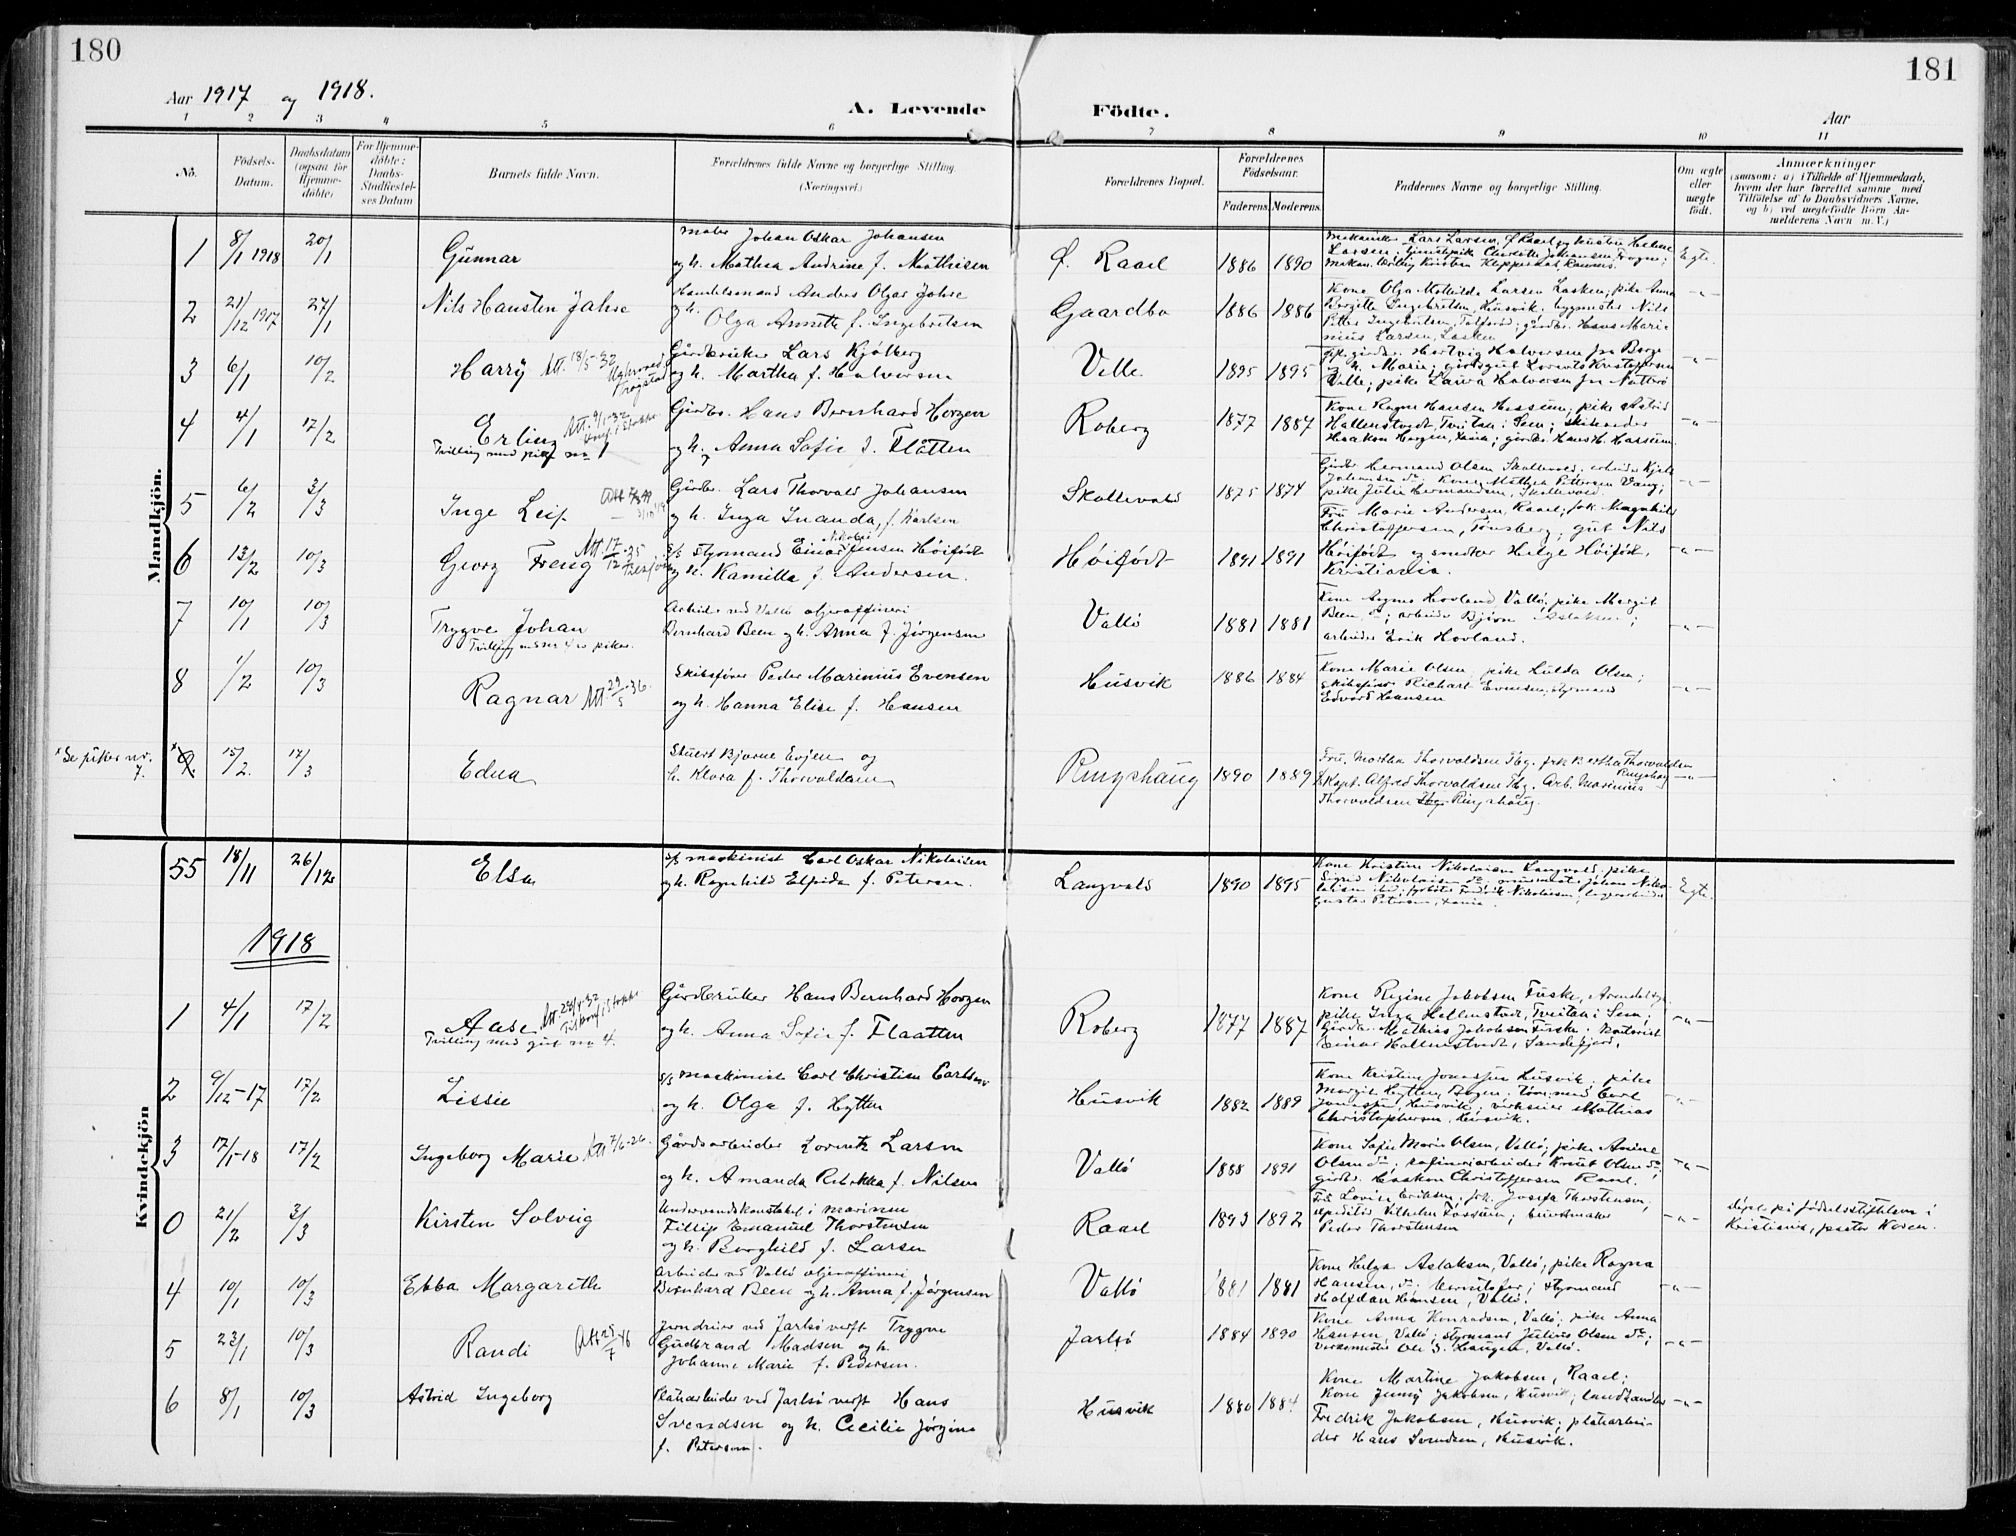 180
181
Aar 1917 og 1918.
A. Levende
Födte.
Aar
1 2 3 4 5 6 7 8 9 10 11
No.
Födsels-
Datum.
Daabsdatum
(ogsaa for
Hjemme-
döbte)
For Hjemme-
döbte:
Daabs-
Stadfæstel-
ses Datum
Barnets fulde Navn.
Forældrenes fulde Navne og borgerlige Stilling.
(Næringsvei.)
Forældrenes Bopæl.
Forældrenes
Födselsaar.
Faderens. Moderens.
Faddernes Navne og borgerlige Stilling.
Om ægte
eller
uægte
födt.
Anmærkninger
(saasom: a) i Tilfælde af Hjemmedaab,
hvem der har forrettet samme med
Tilföielse af to Daabsvidners Navne.
og b) ved uægtefödte Börn An-
mælderens Navn m. V.)
Mandkjön.
1 8/1 1918 20/1 Gunnar
Johan Oskar Johansen
og h. Mathea Andrine f. Mathisen
Ø. Raael 1886 1890
Egte.
2 21/12 1917 27/1 Nils Hansten Jahre
Handelsmand Anders Olgar Jahre
og h.
Olga Annette f. Ingebretsen
Gaardbo 1886 1886
Kone Olga Mathilde Larsen Lasken; pike Anna
Birgitte Ingebretsen, Husvik; bygmester Nils
Petter Ingebretsen, Tolfsrød; gårdbr. Hans Mari-
nius Larsen, Lasken
3 6/1 10/2 Harry Att. 18/5-32
Trøgstad
Gårdbruker Lars Kjølberg
og h. Martha f. Halvorsen
Velle 1895 1895
Velle; pike Laura Halvorsen fra Nøtterø
4 4/1 17/2 Erling Att. 9/1-32
Tvilling med pike no 1
Gårdbr. Hans Bernhard Horgen
og h. Anna Sofie f. Flåtten
Roberg 1877 1887
Kone Ragna Hansen Hassum; pike Astrid
Hallenstvedt, Tveitan i Sem; skibsreder
Haakon Horgen, Xania; gårdbr. Hans H. Hassum.
5 6/2 3/3 Inge Leif
Gårdbr. Lars Thorvald Johansen
og h. Inga Inanda, f. Karlsen
Skallevold 1875 1874
Gårdbr. Hermand Olsen Skallevold; arbeider Kjell
Johansen do; Kone Mathea Pettersen Vang;
pike Julie Hermandsen, Skallevold.
6 13/2 10/3 Georg Freng Att. 17/12-35
s/s styrmand Einar Nikolai Jensen Høifødt
og h. Kamilla f. Andersen.
Høifødt 1891 1891
Fru Marie Andersen, Raael; frk. Magnhild
Christoffersen, Tønsberg; gut Nils
Høifødt og smedker Helge Høifødt,
Kristiania.
7 10/1 10/3 Trygve Johan
Tvilling med nr 4 av piker.
Arbeider ved Vallø oljeraffineri
Bernhard Been og h. Anna f. Jørgensen
Vallø 1881 1881
Kone Signe Hovland, Vallø; pike Margit
Been, do; arbeider Bjørn Aslaksen do;
arbeider Erik Hovland.
8 1/2 10/3 Ragnar Att 29/5-36.
Skibsfører Peder Marinius Evensen
og h. Hanna Elise f. Hansen
Husvik 1886 1884
Kone Marie Olsen; pike Hulda Olsen;
skibsfører Richart Evensen, styrmand
Edvard Hansen
x Se piker nr. 7.
x 9. 15/2. 17/3 Edna
Stuert Bjarne Evjen og
h. Klara f. Thorvaldsen
Ringshaug 1890 1889
Fru Martha Thorvaldsen Tbg. frk Bertha Thorvaldsen
Ringshaug
Kapt. Alfred Thorvaldsen Tbg. Arb. Marinius
Thorvaldsen Tbg. Ringshaug.
Kvindekjön
55 18/11 26/12 Elsa
s/s maskinist Carl Oskar Nikolaisen
og h. Ragnhild Elfrida f. Petersen.
Langvald 1890 1895
Kone Kristine Nikolaisen Langvald; pike
Sigrid Nikolaisen do; Johan Niko-
laisen ibd; fyrbøter Fredrik Nikolaisen; lagerarbeider
Gustav Petersen, Xania.
Egte.
1918
1 4/1 17/2 Aase Att 28/1-32
Tvilling med gut no 4.
Gårdbruker Hans Bernhard Horgen
og h. Anna Sofie f. Flaatten
Roberg 1877 1887
Kone Regine Jakobsen Fuske, Arendal;
pike Inga Hallenstvedt, Tveitan i Sem;
Gårdbr. Mathias Jakobsen Fuske; kontorist
Einar Hallenstvedt, Sandefjord.
2 9/12-17 17/2 Lissie
s/s maskinist Carl Christian Carlsen
og h. Olga f. Hytten
Husvik 1882 1889
Kone Kristine Jonassen Husvik; pike
Margit Hytten, Bogen; tømmerm. Carl
Jonassen, Husvik; Mathias
Christophersen, Husvik.
3 17/1-18 17/2 Ingeborg Marie Att 7/6-26.
Gårdsarbeider Lorentz Larsen
og h. Amanda Rebekka f. Nilsen
Vallø 1888 1891
Kone Sofie Marie Olsen, Vallø; pike Amine
Olsen do; rafineriarbeider Knut Olsen do;
gårdbr. Haakon Christoffersen Raael.
0 21/2 3/3 Kirsten Solveig
Undervandskonstabel i marinen
Fillip Emanuel Thorstensen
og h. Borghild f. Larsen
Raael 1893 1892
Fru Lovise Eriksen; frk. Josefa Thorstensen;
expeditør Vilhelm Fossum; buntmaker
Peder Thorstensen
døpt på fødselsstiftelsen i
Kristiania, pastor Koren.
4 10/1 10/3 Ebba Margarethe
Arbeider ved Vallø oljeraffineri
Bernhard Been og h. Anna f. Jørgensen
Vallø 1881 1881
Kone Helga Aslaksen, Vallø; pike Ragna
Hansen, do; styrmand
Halfdan Hansen, Vallø.
5 23/1 10/3 Randi Att 25/7 46
Jerndreier ved Jarlsø verft Trygve
Gudbrand Madsen og h.
Johanne Marie f. Pedersen.
Jarlsø 1884 1890
Kone Anna Konradsen, Vallø; pike Anna
Hansen, Vallø; styrmand Julius Olsen do;
verksmester Ole S. Haugen, Vallø.
6 8/1 10/3 Astrid Ingeborg
Platearbeider ved Jarlsø verft Hans
Svendsen og h. Cecilie Jørgine
f. Petersen.
Husvik 1880 1884
Kone Martine Jakobsen, Raael;
Kone Jenny Jakobsen, Husvik; landhandler
Fredrik Jakobsen, Husvik; platearbei-
der Hans Svendsen, Husvik.